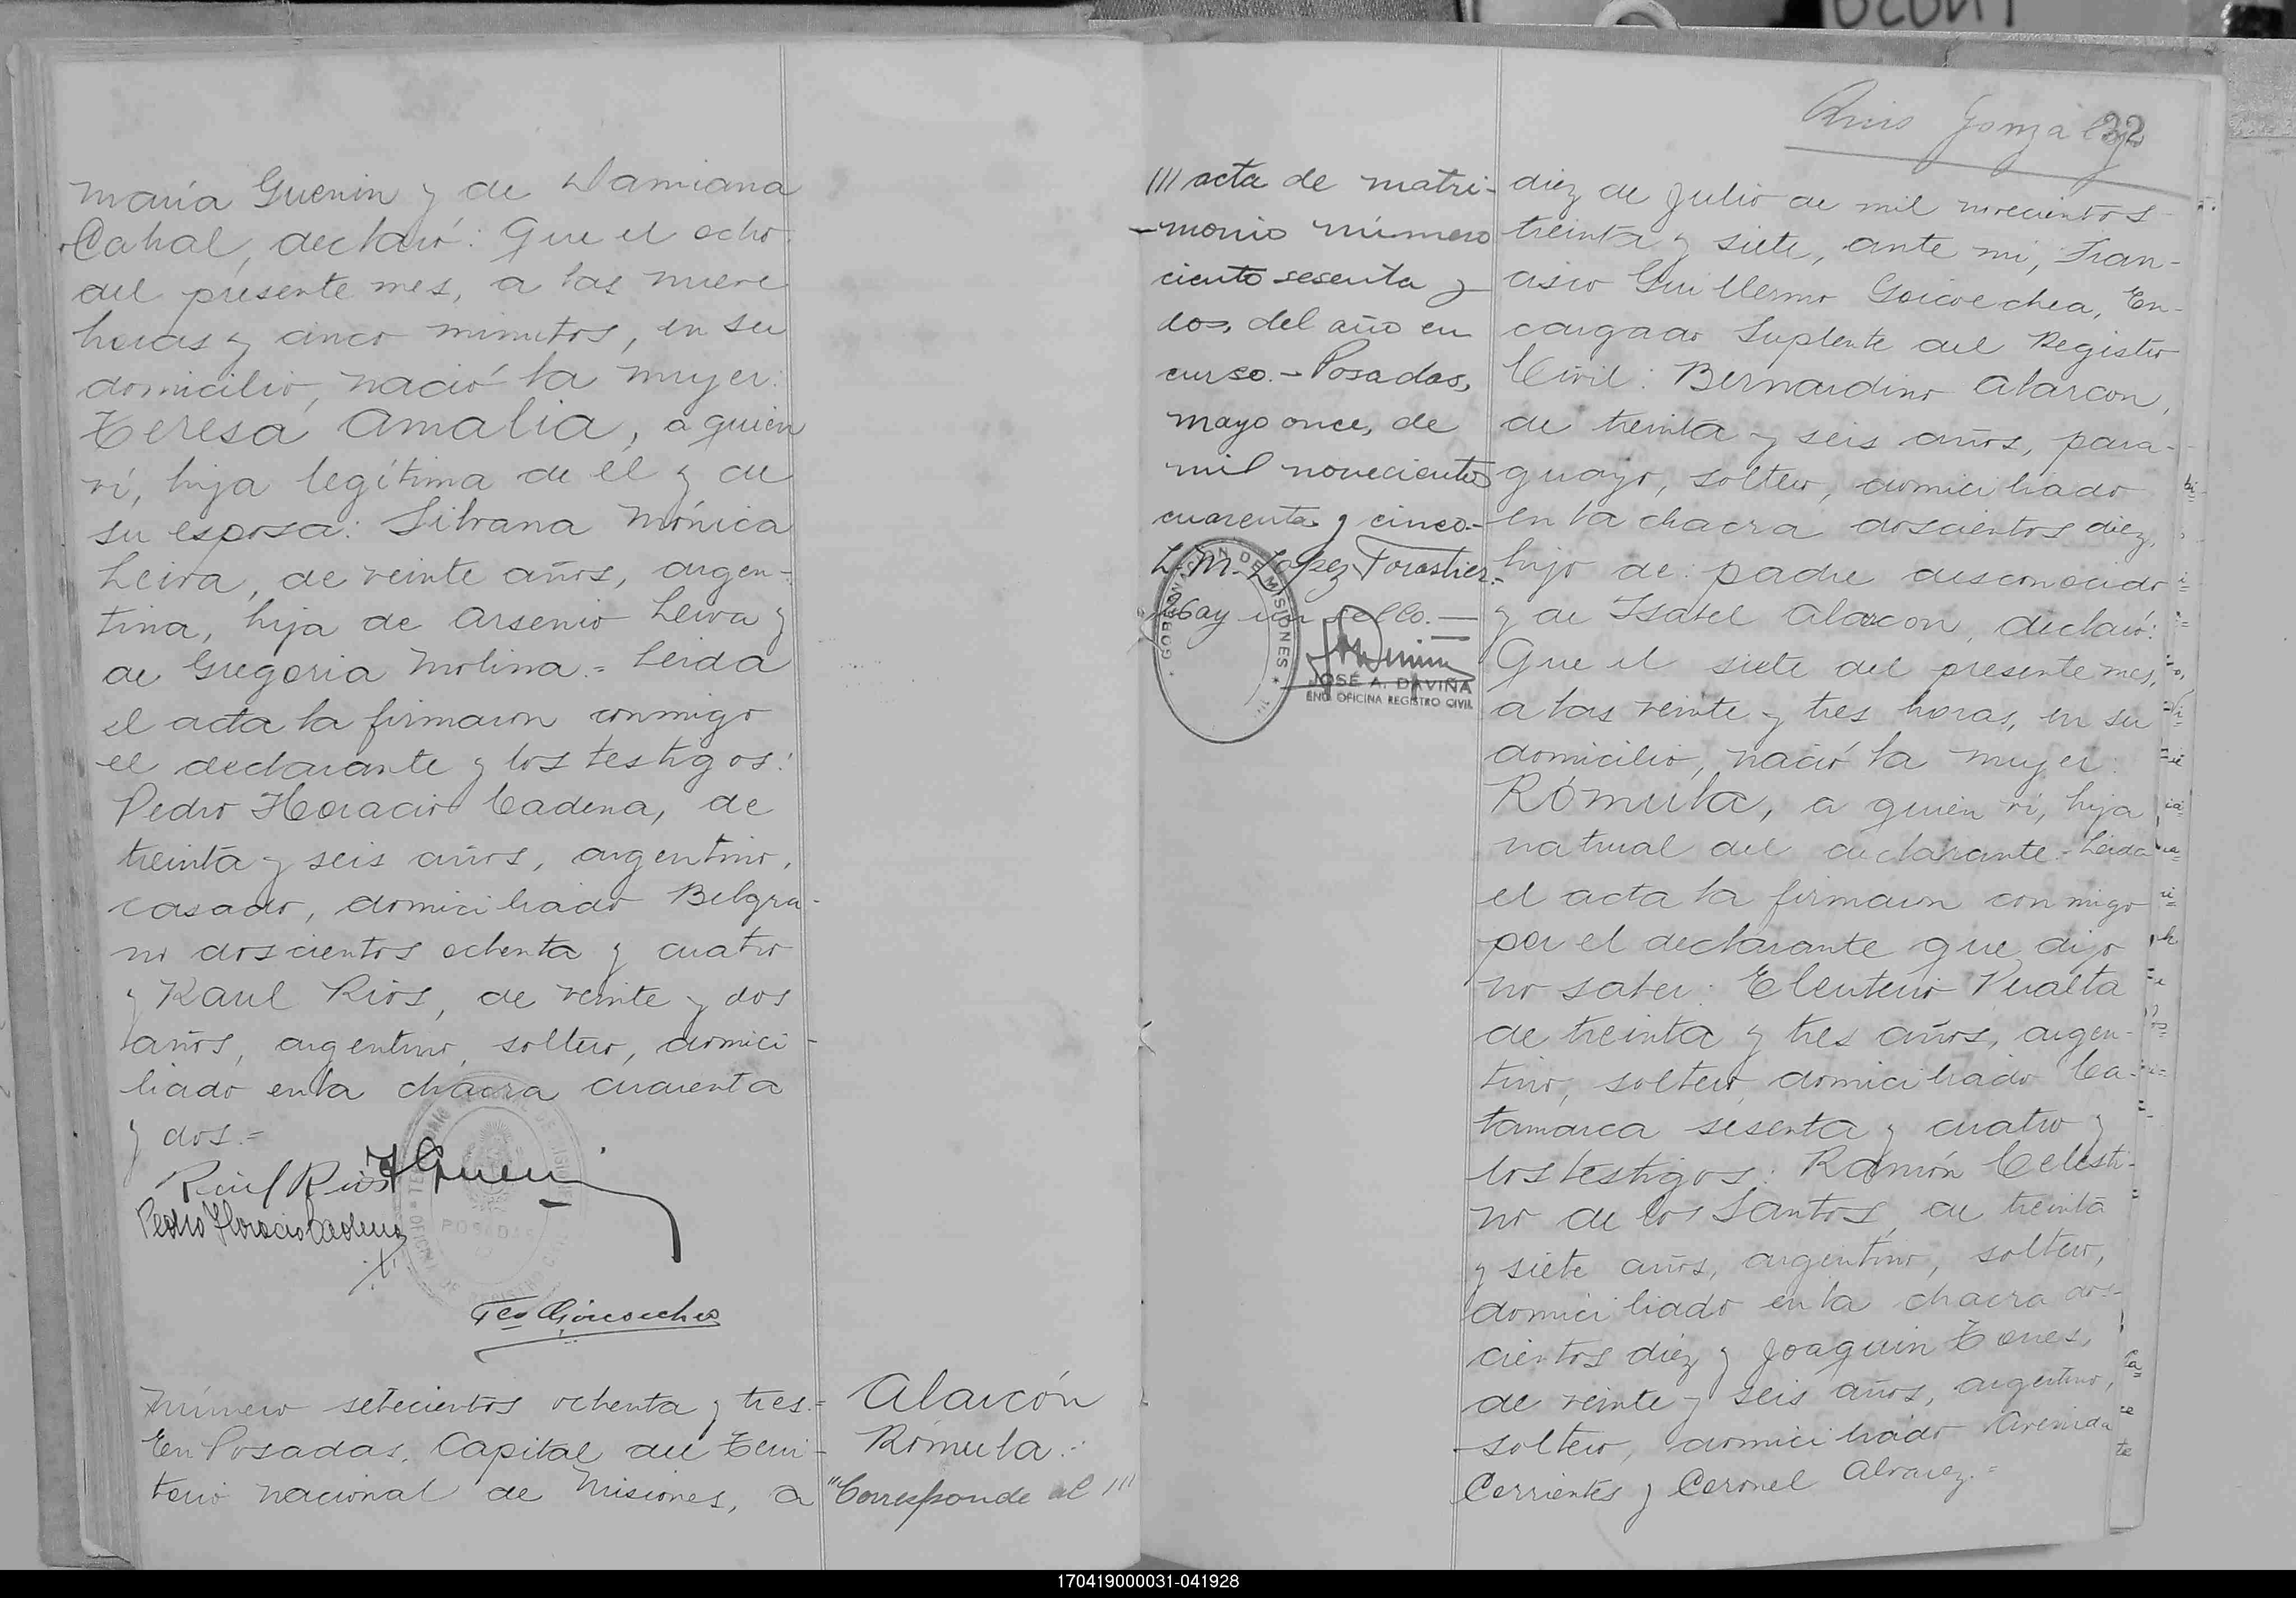 María Guenin y de Damiana
Cabal, declaró: Que el ocho
del presente mes, a las nueve
horas y cinco minutos, en su
domicilio, nació la mujer:
Teresa Amalia, a quien
ví, hija legítima de él y de
su esposa: Silvana Mónica
Leiva, de veinte años, argen-
tina, hija de Arsenio Leiva y
de Gregoria Molina.= Leida
el acta la firmaron conmigo
el declarante y los testigos:
Pedro Horacio Cadena, de
treinta y seis años, argentino,
casado, domiciliado Belgra-
no doscientos ochenta y cuatro
y Raul Rios, de veinte y dos
años, argentino, soltero, domici-
liado en la chacra cuarenta
y dos.=
Raul Rios
Pedro Horacio Cadena
POSADAS
Fco Goicoechea
Número setecientos ochenta y tres.=
En Posadas, Capital del Terri-
torio nacional de Misiones, a
Alarcón
Rómula.=
"Corresponde al ///
/// acta de matri-
-monio número
ciento sesenta y
dos, del año en
curso.- Posadas,
mayo once, de
mil novecientos
cuarenta y cinco.-
L. M. Lopez Forastier.-
Hay un sello.-
GOBERNACION DE MISIONES
JOSÉ A. DAVIÑA
ENC. OFICINA REGISTRO CIVIL
Gonzalez
32
diez de Julio de mil novecientos
treinta y siete, ante mi, Fran-
cisco Guillermo Goicoechea, En-
cargado Suplente del Registro
Civil: Bernardino Alarcon,
de treinta y seis años, para-
guayo, soltero, domiciliado
en la chacra doscientos diez,
hijo de padre desconocido
y de Isabel Alarcon, declaró:
Que el siete del presente mes,
a las veinte y tres horas, en su
domicilio, nació la mujer:
Rómula, a quien ví, hija
natural del declarante.= Leida
el acta la firmaron conmigo
por el declarante que dijo
no saber: Eleuterio Peralta
de treinta y tres años, argen-
tino, soltero, domiciliado Ca-
tamarca sesenta y cuatro y
los testigos: Ramón Celesti-
no de los Santos, de treinta
y siete años, argentino, soltero,
domiciliado en la chacra dos-
cientos diez y Joaquin Torres,
de veinte y seis años, argentino,
soltero, domiciliado Avenida
Corrientes y Coronel Alvarez.=
170419000031-041928